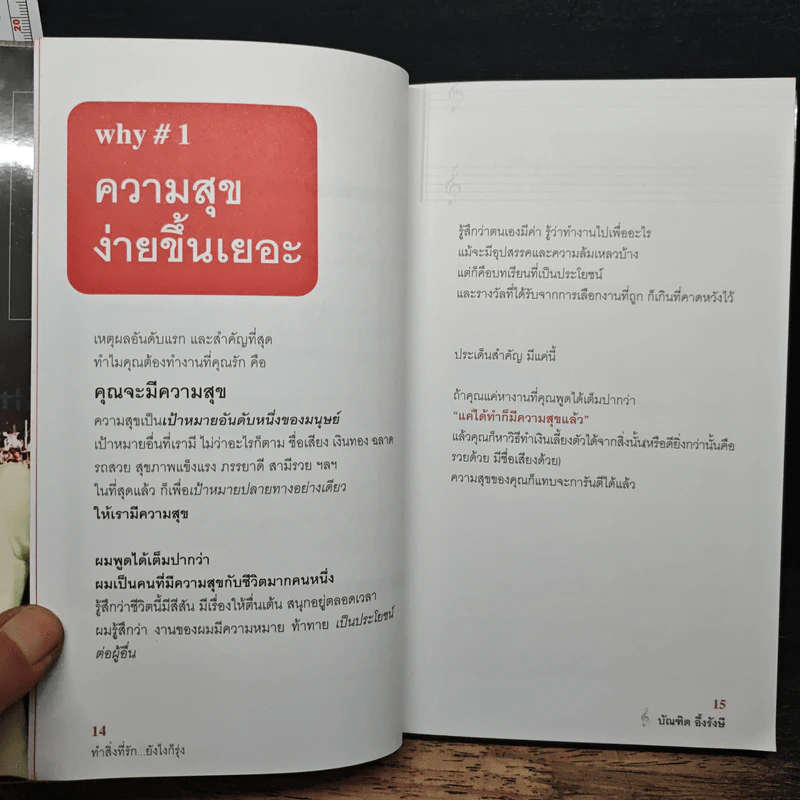 20
why # 1
ความสุข
ง่ายขึ้นเยอะ
เหตุผลอันดับแรก และสำคัญที่สุด
ทำไมคุณต้องทำงานที่คุณรัก คือ
คุณจะมีความสุข
ความสุขเป็นเป้าหมายอันดับหนึ่งของมนุษย์
เป้าหมายอื่นที่เรามี ไม่ว่าอะไรก็ตาม ชื่อเสียง เงินทอง ฉลาด
รถสวย สุขภาพแข็งแรง ภรรยาดี สามีรวย ฯลฯ
ในที่สุดแล้ว ก็เพื่อเป้าหมายปลายทางอย่างเดียว
ให้เรามีความสุข
ผมพูดได้เต็มปากว่า
ผมเป็นคนที่มีความสุขกับชีวิตมากคนหนึ่ง
รู้สึกว่าชีวิตนี้มีสีสัน มีเรื่องให้ตื่นเต้น สนุกอยู่ตลอดเวลา
ผมรู้สึกว่า งานของผมมีความหมาย ท้าทาย เป็นประโยชน์
ต่อผู้อื่น
14
ทำสิ่งที่รัก...ยังไงก็รุ่ง
รู้สึกว่าตนเองมีค่า รู้ว่าทำงานไปเพื่ออะไร
แม้จะมีอุปสรรคและความล้มเหลวบ้าง
แต่ก็คือบทเรียนที่เป็นประโยชน์
และรางวัลที่ได้รับจากการเลือกงานที่ถูก ก็เกินที่คาดหวังไว้
ประเด็นสำคัญ มีแค่นี้
ถ้าคุณแค่หางานที่คุณพูดได้เต็มปากว่า
"แค่ได้ทำก็มีความสุขแล้ว"
แล้วคุณก็หาวิธีทำเงินเลี้ยงตัวได้จากสิ่งนั้น(หรือดียิ่งกว่านั้นคือ
รวยด้วย มีชื่อเสียงด้วย)
ความสุขของคุณก็แทบจะการันตีได้แล้ว
15
บัณฑิต อึ้งรังษี